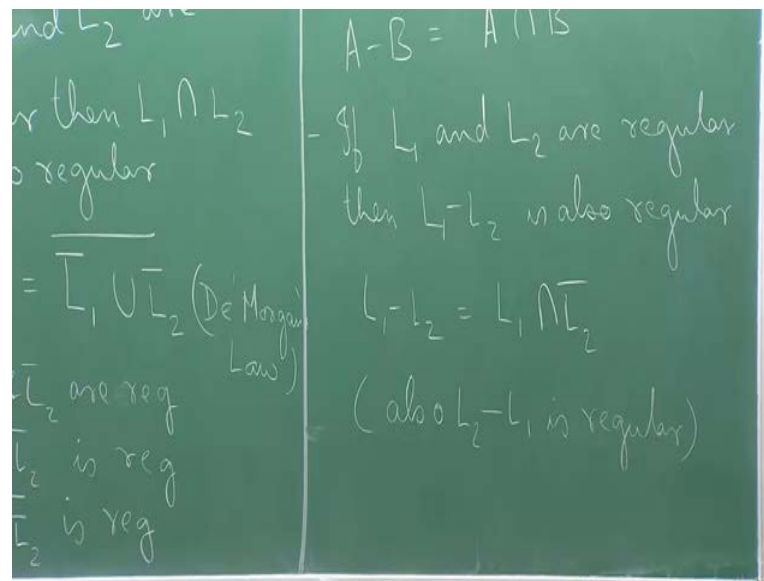 and L₂ are
then L₁ ∩ L₂
regular
= \overline{\overline{L}₁ ∪ \overline{L}₂} (De Morgan
Law)
\overline{L}₂ are reg
\overline{L}₂ is reg
\overline{L}₂ is reg
A - B = A ∩ B
- If L₁ and L₂ are regular
then L₁-L₂ is also regular
L₁-L₂ = L₁ ∩ \overline{L}₂
(also L₂-L₁ is regular)